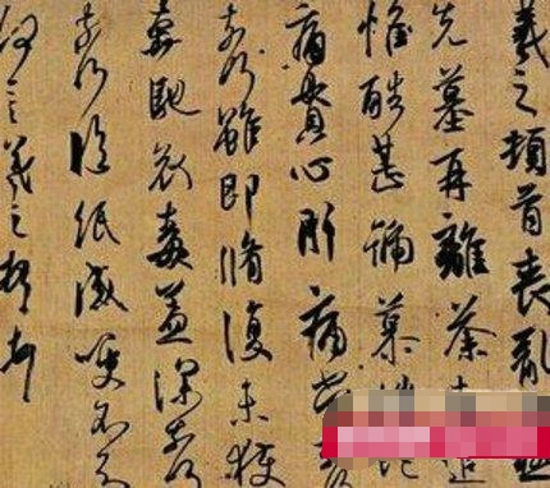 羲之頓首喪亂
先墓再離荼
惟酷甚號慕
痛貫心肝痛當
奈何雖即脩復未獲
奔馳哀毒益深奈何
奈何臨紙感哽不知
何言羲之頓首